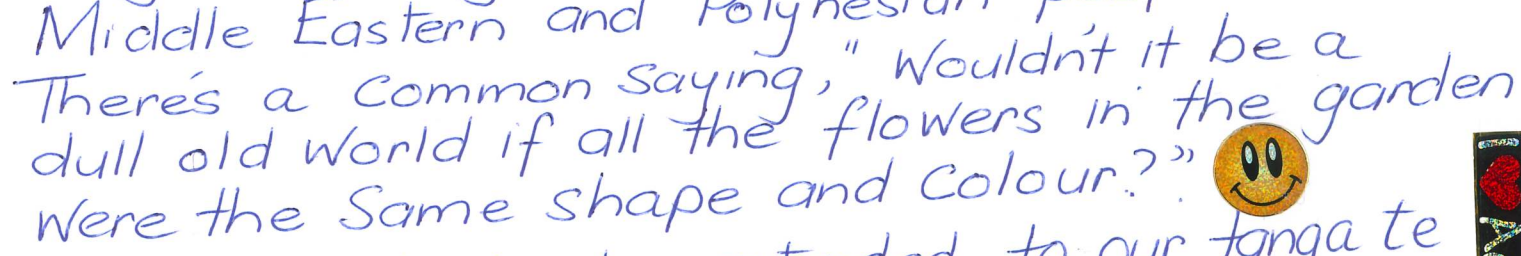 Middle Eastern and Polynesian
There's a Common Saying, "Wouldn't it be a
dull old World if all the flowers in the garden
Were the Same shape and Colour?".
to our tanga te